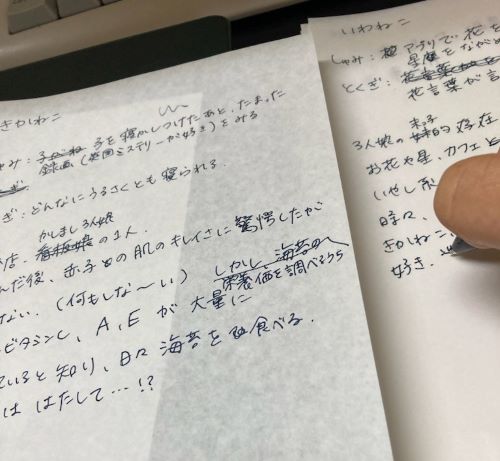 きかしねこ
ゅみ：子を寝かしつけたあと、たまった
録画（英国ミステリーが好き）をみる
ぎ：どんなにうるさくとも寝られる。
かしまし3人娘
店、看板娘の1人．
んだ後、赤子との肌のキレイさに驚愕したが
ない．（何もしな〜い）しかし、海苔の
栄養価を調べるうち
ビタミンC、A、Eが大量に
いると知り、日々海苔を食べる．
は はたして…!?
いわねこ
しゅみ：アプリで花を
星座をながめ
とくぎ：花言葉
花言葉が言
3人娘の末っ子的存在
お花や星、カフェと
いやし系
日々、
きかしねこ
好き．